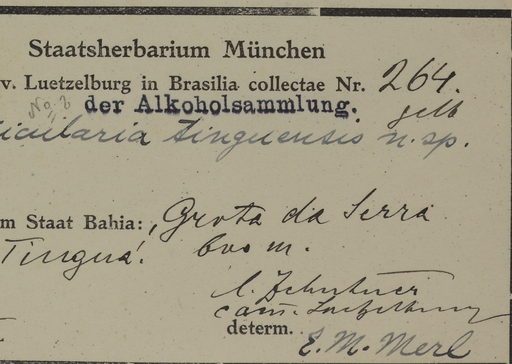 Staatsherbarium München
v. Luetzelburg in Brasilia collectae Nr. 264.
der Alkoholsammlung. gelb
icularia tinguensis n. sp.
m Staat Bahia: Grota da Serra
Tinguá. 600 m.
l. Zehntner
com. Luetzelburg
determ. E. M. Merl